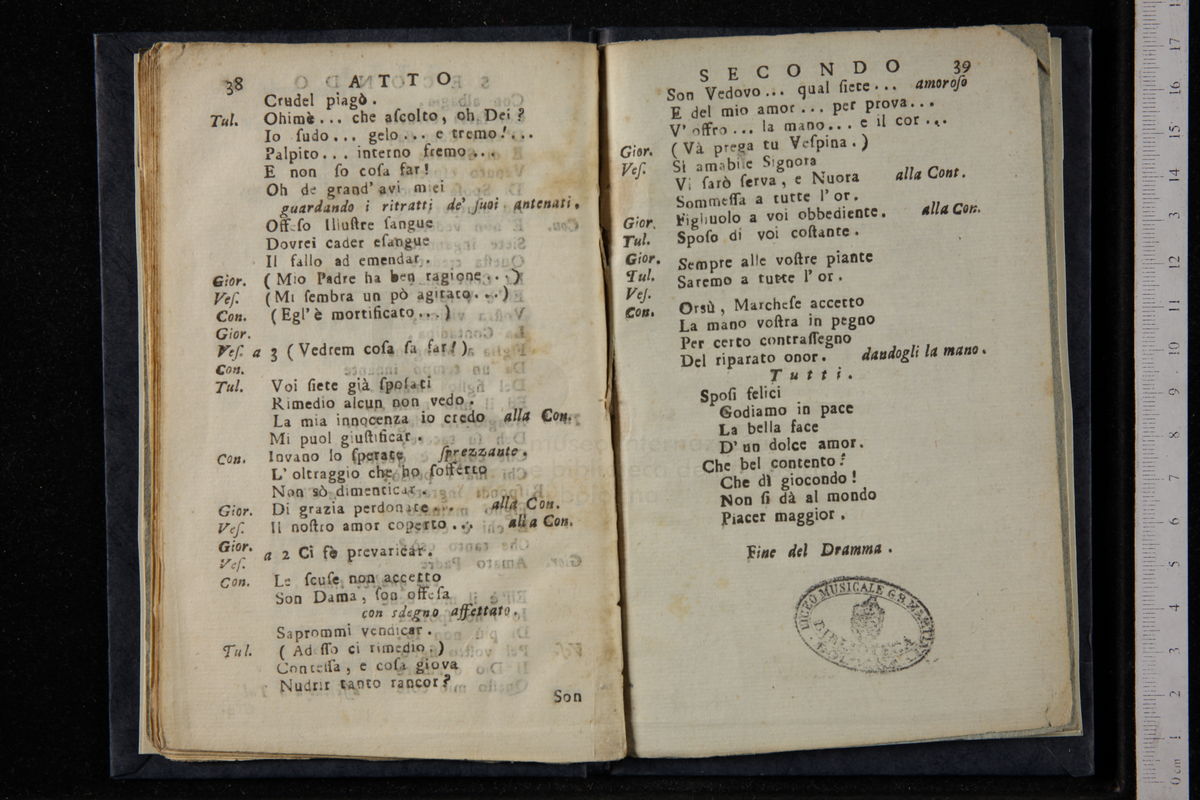 38 ATTO
Crudel piagò.
Tul. Ohimè... che aſcolto, oh Dei?
Io ſudo... gelo... e tremo!...
Palpito... interno fremo...
E non ſo coſa far!
Oh de grand' avi miei
guardando i ritratti de' ſuoi antenati.
Offeſo Illuſtre ſangue
Dovrei cader eſangue
Il fallo ad emendar.
Gior. (Mio Padre ha ben ragione...)
Veſ. (Mi ſembra un pò agitato...)
Con. (Egl' è mortificato...)
Gior.
Veſ. a 3 (Vedrem coſa ſa far!)
Con.
Tul. Voi ſiete già ſpoſati
Rimedio alcun non vedo.
La mia innocenza io credo alla Con.
Mi puol giuſtificar.
Con. Invano lo ſperate ſprezzante.
L' oltraggio che ho ſofferto
Non sò dimenticar.
Gior. Di grazia perdonate... alla Con.
Veſ. Il noſtro amor coperto... alla Con.
Gior.
Veſ. a 2 Ci fè prevaricar.
Con. Le ſcuſe non accetto
Son Dama, ſon offeſa
con sdegno affettato.
Saprommi vendicar.
Tul. (Adeſſo ci rimedio.)
Conteſſa, e coſa giova
Nudrir tanto rancor?
Son
SECONDO 39
Son Vedovo... qual ſiete... amoroſo
E del mio amor... per prova...
V' offro... la mano... e il cor...
Gior. (Và prega tu Veſpina.)
Veſ. Sì amabile Signora
Vi ſarò ſerva, e Nuora alla Cont.
Sommeſſa a tutte l' or.
Gior. Figliuolo a voi obbediente. alla Con.
Tul. Spoſo di voi coſtante.
Gior. Sempre alle voſtre piante
Tul. Saremo a tutte l' or.
Veſ.
Con. Orsù, Marcheſe accetto
La mano voſtra in pegno
Per certo contraſſegno
Del riparato onor. dandogli la mano.
Tutti.
Spoſi felici
Godiamo in pace
La bella face
D' un dolce amor.
Che bel contento!
Che dì giocondo!
Non ſi dà al mondo
Piacer maggior.
Fine del Dramma.
LICEO MUSICALE G.B. MARTINI
BIBLIOTECA